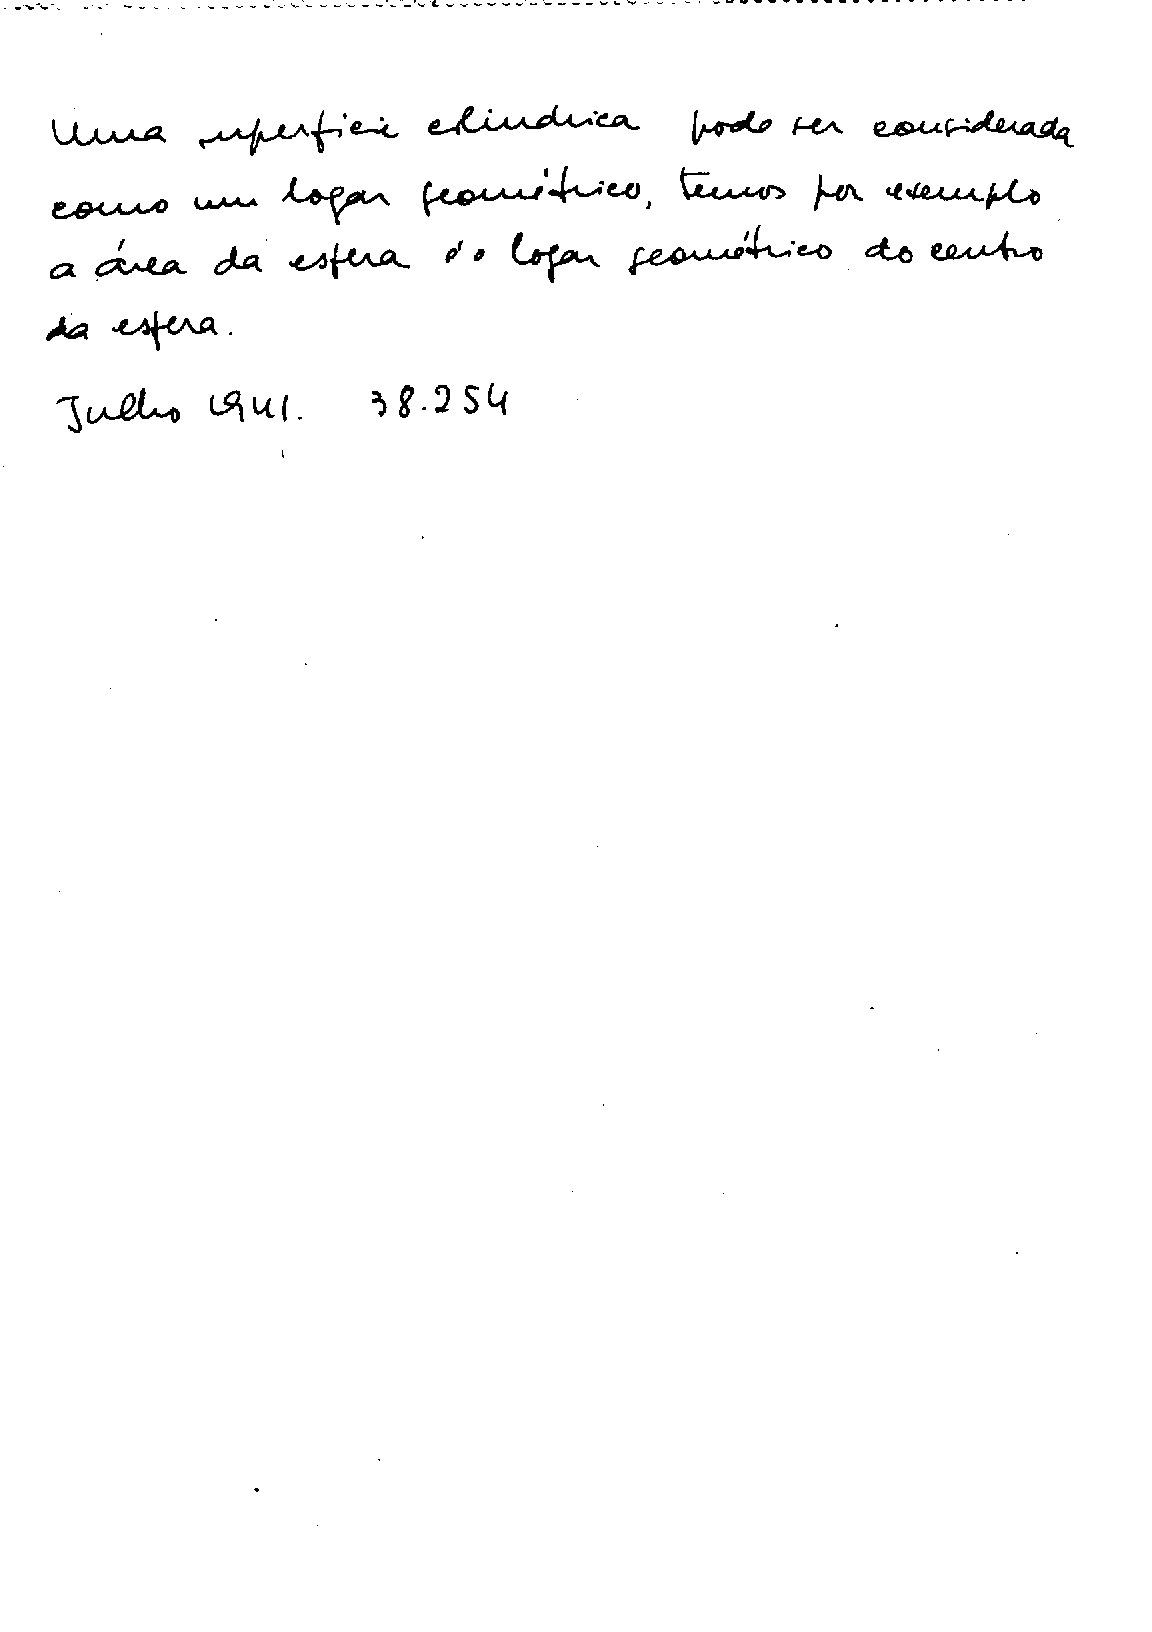 Uma superficie cilindrica pode ser considerada
como um logar geométrico, temos por exemplo
a área da esfera é o logar geométrico do centro
da esfera.
Julho 1941. 38.254